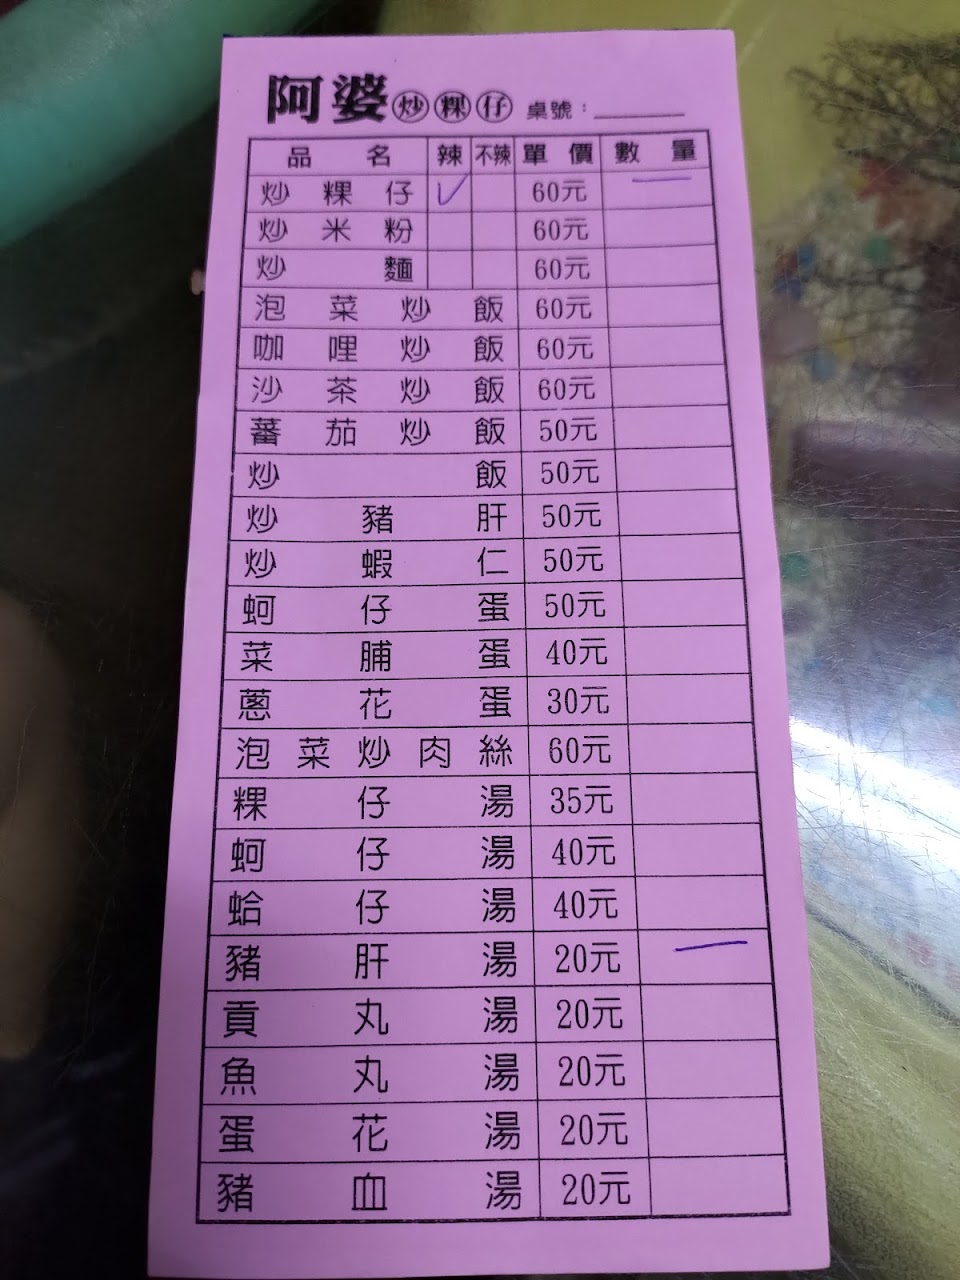 阿婆炒粿仔 桌號：
品名 辣 不辣 單價 數量
炒粿仔 ✓ 60元 一
炒米粉 60元
炒麵 60元
泡菜炒飯 60元
咖哩炒飯 60元
沙茶炒飯 60元
蕃茄炒飯 50元
炒飯 50元
炒豬肝 50元
炒蝦仁 50元
蚵仔蛋 50元
菜脯蛋 40元
蔥花蛋 30元
泡菜炒肉絲 60元
粿仔湯 35元
蚵仔湯 40元
蛤仔湯 40元
豬肝湯 20元 一
貢丸湯 20元
魚丸湯 20元
蛋花湯 20元
豬血湯 20元